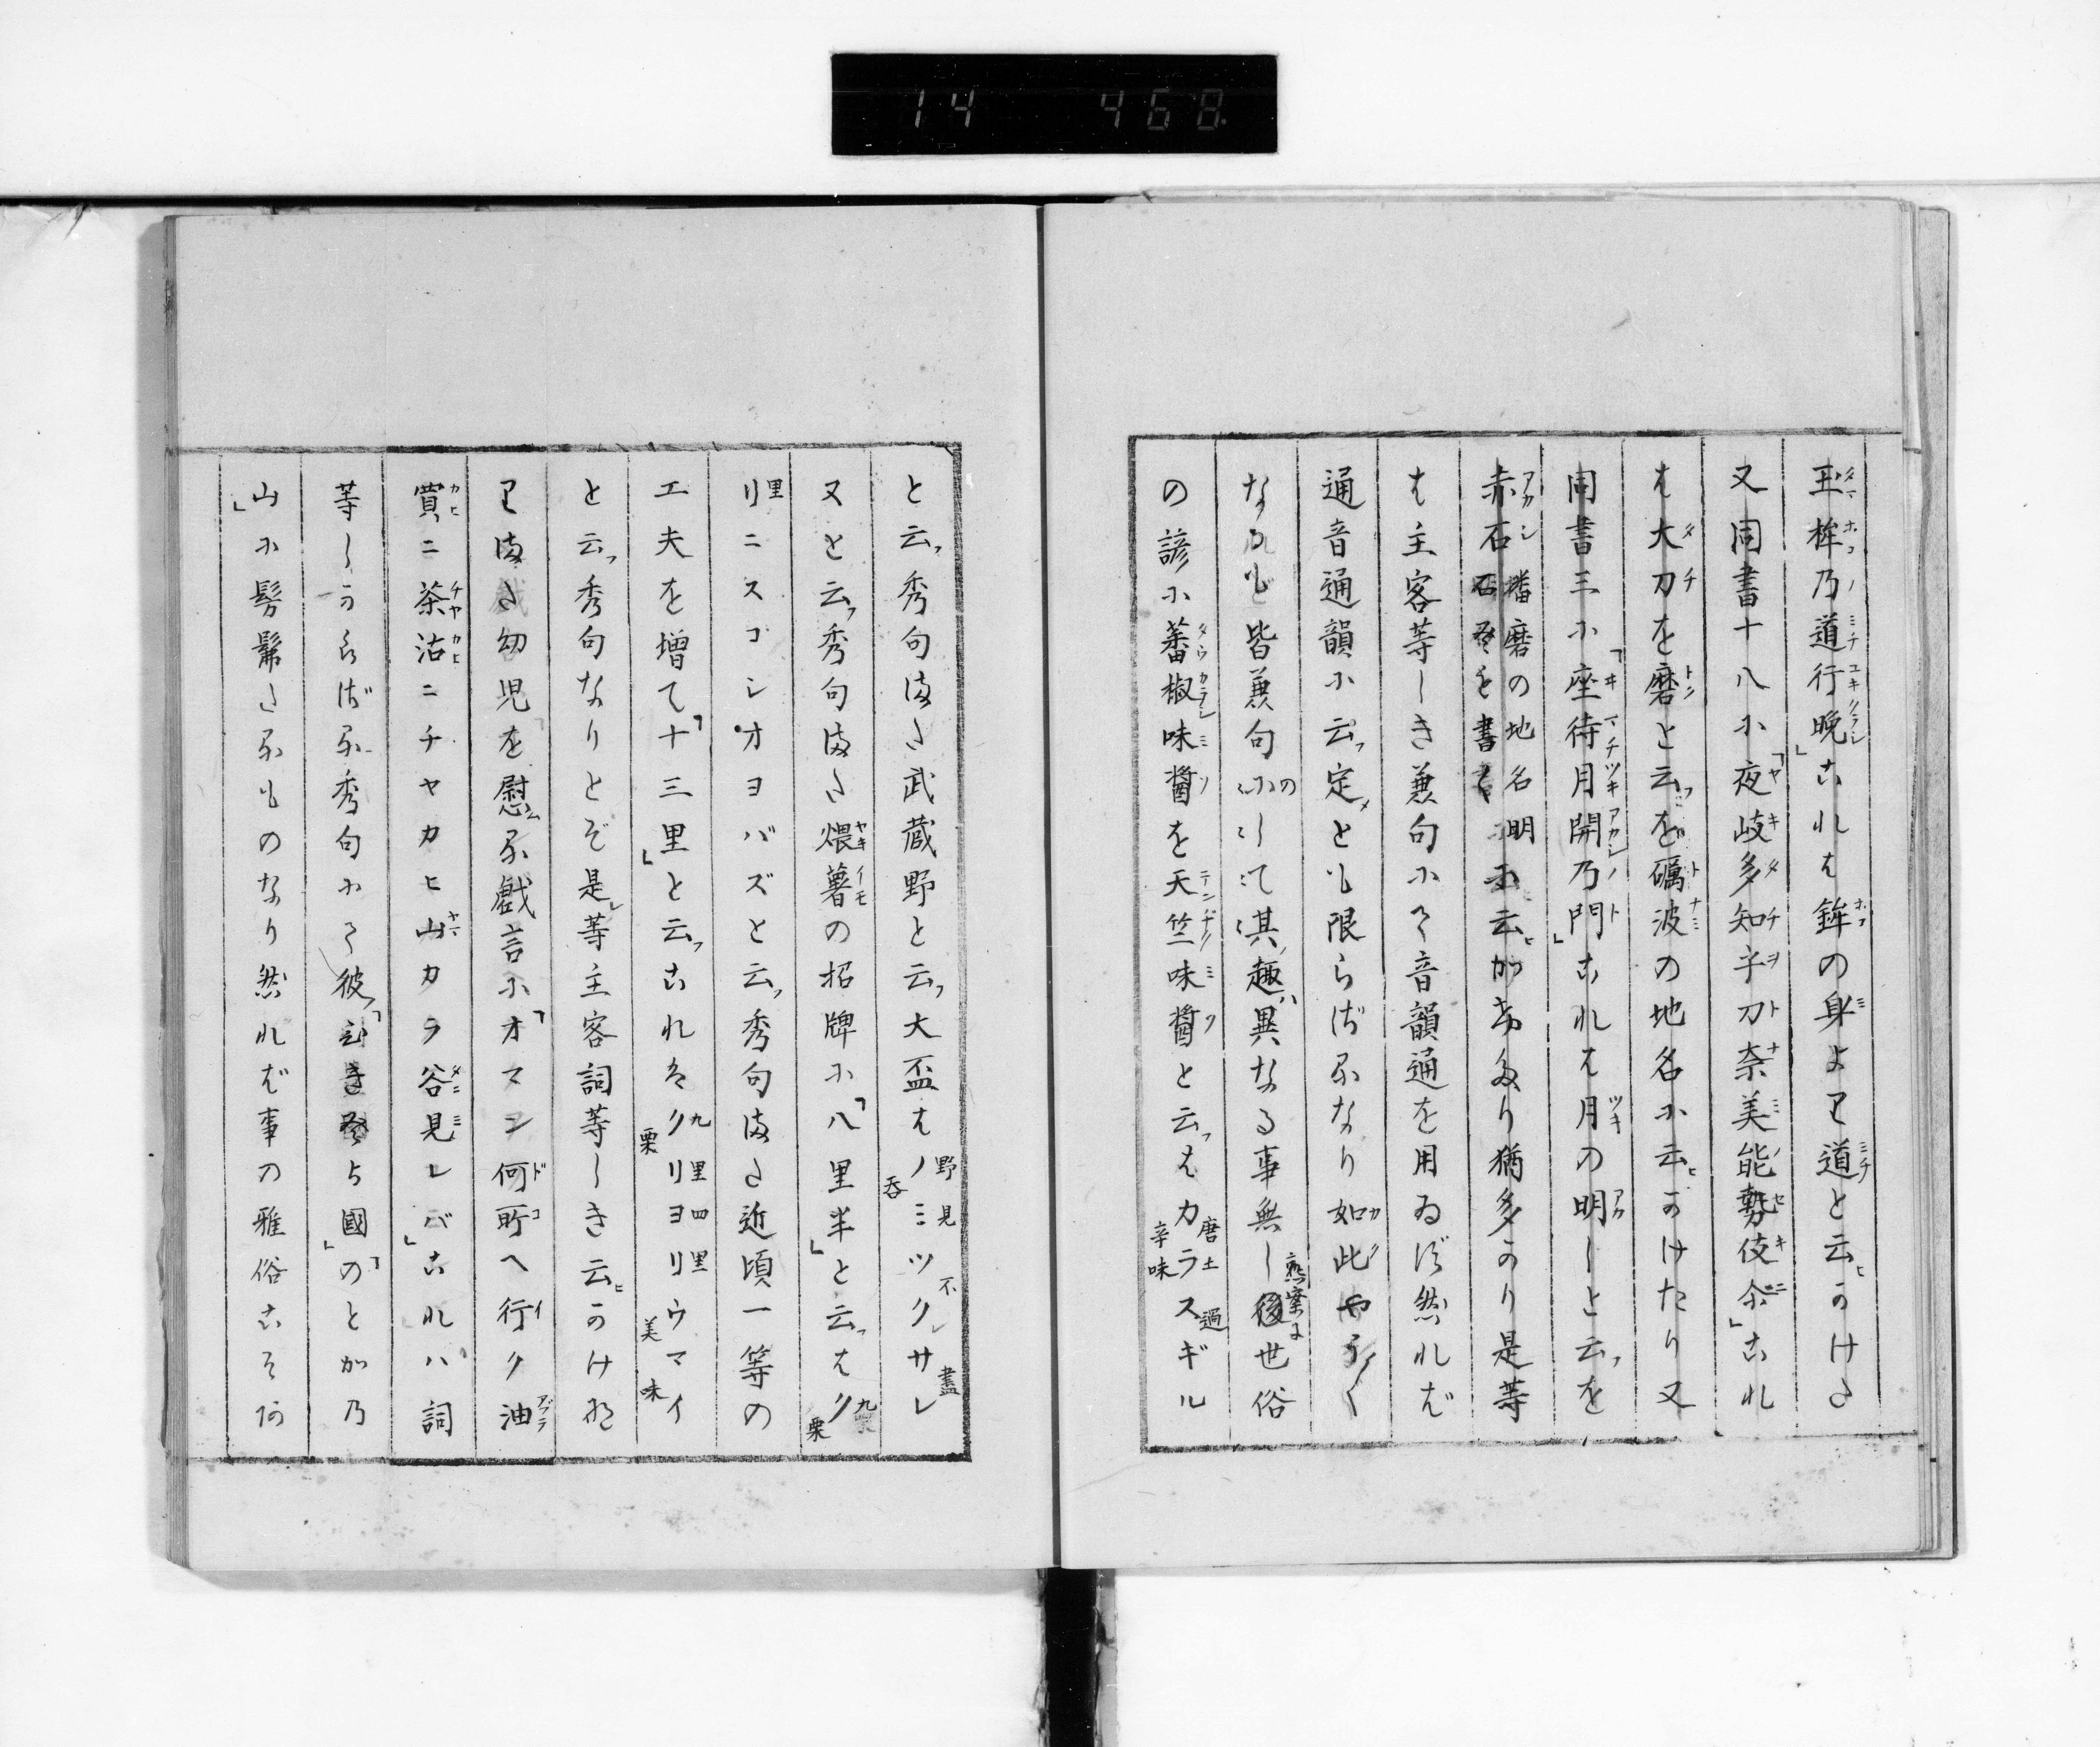 14 468
玉桙乃道行晩」これは鉾の身より道と云ひかけた
又同書十八に「夜岐多知乎刀奈美能勢伎尓」これ
は大刀を磨と云ふを礪波の地名に云ひかけたり又
同書三に「座待月開乃門」これは月の明しと云ふを
赤石播磨の地名明石に云ひかけたり猶多かり是等
は主客等しき兼句にて音韻通を用ゐず然れど
通音通韻に云ふ定めとも限らざるなり如此やう〳〵
なれど皆兼句のにして其趣ハ異なる事無し後世俗
の諺に蕃椒味醤を天竺味醤と云ふはカラスギル
唐土過
辛味
と云ふ秀句また武蔵野と云ふ大盃はノミツクサレ
野見不盡
呑
又と云ふ秀句また煨薯の招牌に「八里半」と云ふはク
九
栗
リニスコシオヨバズと云ふ秀句また近頃一等の
里
工夫を増て「十三里」と云ふこれはクリヨリウマイ
九里四里
栗 美味
と云ふ秀句なりとぞ是等主客詞等しき云ひかけな
りまた幼児を慰むる戯言に「オマン何所へ行ク油
買ニ茶沽ニチヤカヒ山カラ谷見レバ」これハ詞
等しからざる秀句にて彼ノ「
與國」のとかの
山」に髣髴たるものなり然れど事の雅俗こそあ